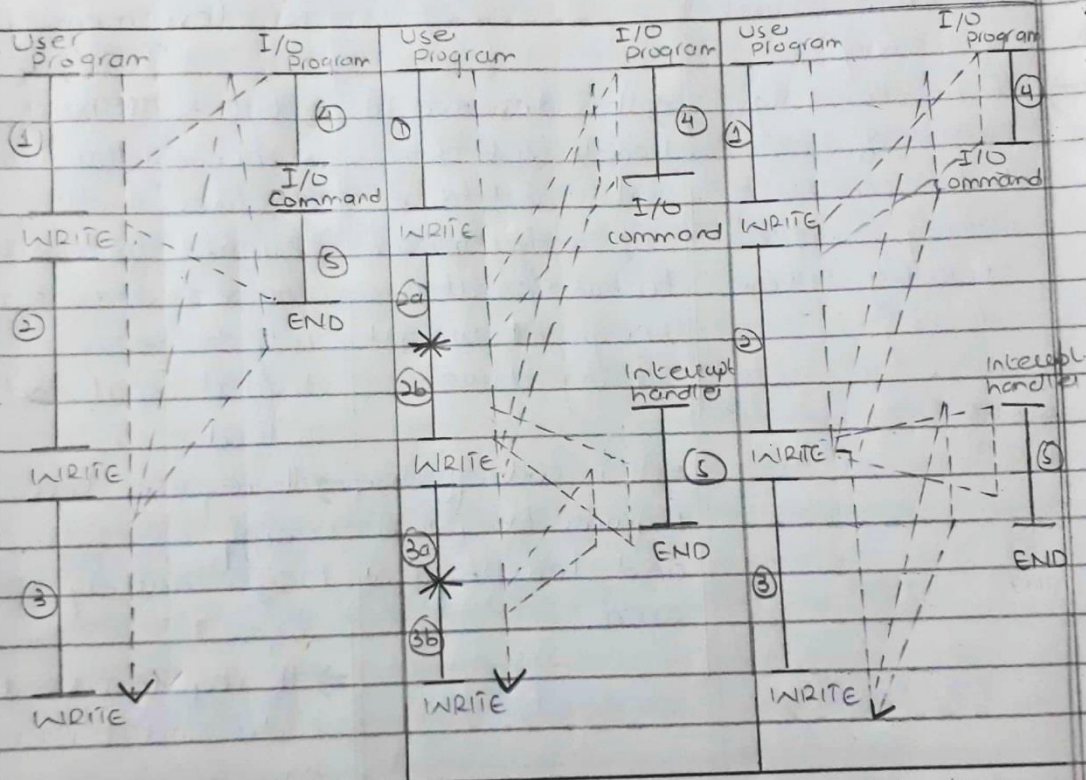 User
Program
I/O
Program
①
④
I/O
Command
WRITE
⑤
②
END
WRITE
③
WRITE
Use
Program
I/O
Program
①
④
WRITE
I/O
command
2a
2b
Interrupt
handler
WRITE
⑤
3a
END
3b
WRITE
Use
Program
I/O
Program
①
④
I/O
ommand
WRITE
②
Interrupt
handler
WRITE
⑤
END
③
WRITE